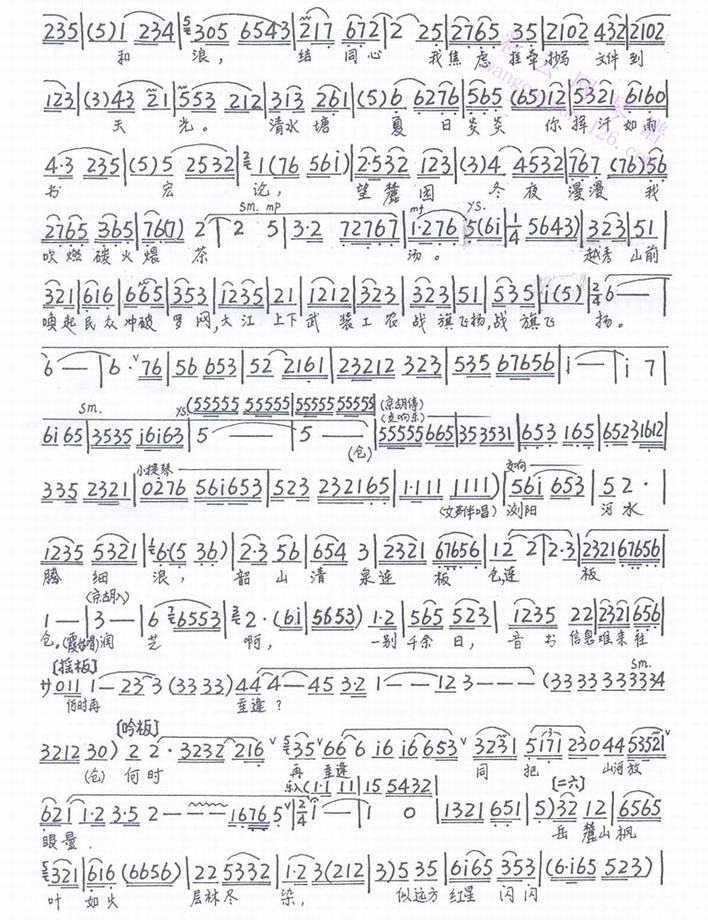 235|(5)1 234|305 6543|217 672|2 25|2765 35|2102 432|2102
和 浪， 结 同心 我焦虑 挥牵 抄写 文件到
123|(3)43 21|553 212|313 261|(5)6 6276|565 (65)12|5321 6160|
天 光。 清水塘 夏 日炎炎 你挥汗如雨
4·3 235|(5)5 2532|1(76 56i)|2·532 123|(3)4 4532|767 (76)56
书 宏 论， 望麓园 冬夜漫漫 我
sm. mp mf ys.
2765 365|767(7) 2|2 5|3·2 72767|1·276 5(6i|1/4 5643)|323|51|
吹燃碳火煨 茶 汤。 越秀山前
321|616|665|353|1235|21|1212|323|323|51|535|i(5)|2/4 6—|
唤起民众冲破 罗网，大江上下武 装工农战旗飞扬，战旗飞 扬。
6—|6·76|56 653|52 2161|23212 323|535 67656|i—|i 7|
sm. ys. (55555 5555|55555 55555 (京胡停)(交响乐)
6i 65|3535 i6i63|5——|5——|55555 665|353531|653 165|65231612|
(仓)
小提琴 交响
335 2321|0276 56i653|523 232165|1·111 1111)|56i 653|52·|
(女声伴唱) 浏阳 河水
1235 5321|6(5 36)|2·3 56|654 3|2321 67656|12 2|2·3|232167656|
腾 细 浪， 韶山清 泉连 板 仓连 板
(京胡入)
1—|3—|6 6553|2·(6i|5653)|1·2|565 523|1235 22|2321 656|
仓。(霞姑唱)润 芝 啊， 一别千余日， 音书信息难来往
[摇板] sm.
サ011 1—23—3(33 33)44 4—45 3·2 1——12 3———(33333 33334
何时再 重逢？
[吟板]
3212 30) 2 2·3232 216 35 66 6 i6 i6 653|3231|5171 230 44 53521
(仓) 何时 再 重逢 同把 山河放
乐入(1·1 11|15 5432| [二六]
621 1·2 3·5 2———1676 5|2/4 1—|1 0|1321 651|5)32 12|6565
眼量. 岳麓山枫
321|616 (6656)|22 5332|1·2 3(212|3)5 35|6i65 353|(6·i65 523)|
叶 如火 层林尽 染， 似远方红星 闪闪